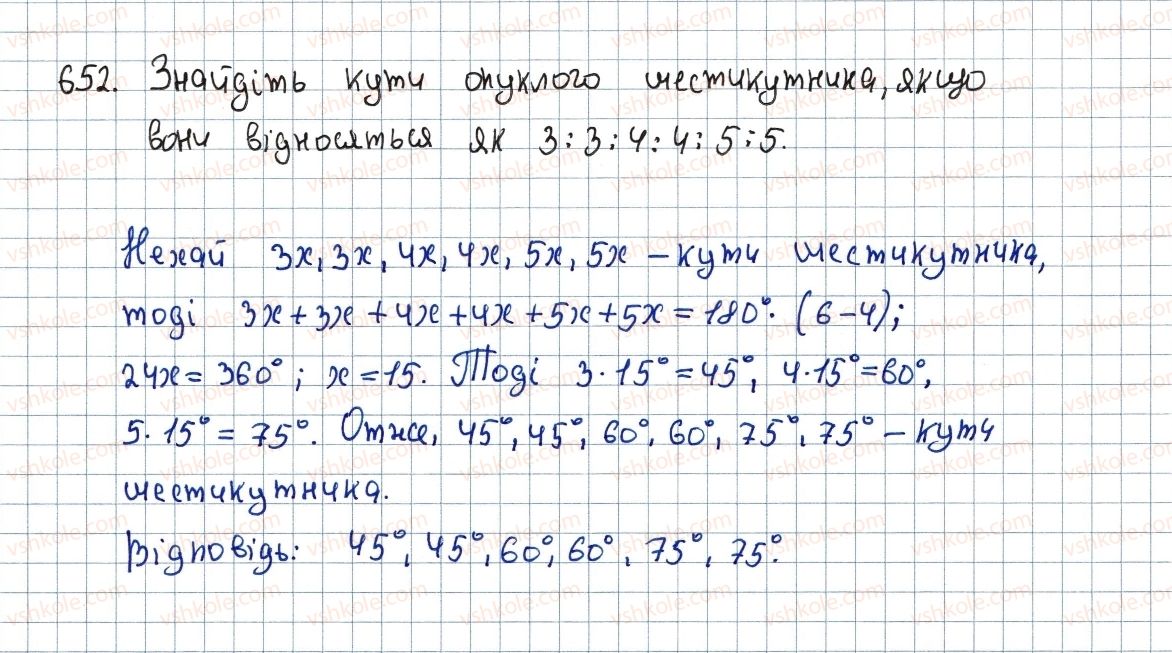 652. Знайдіть кути опуклого шестикутника, якщо
вони відносяться як 3:3:4:4:5:5.
Нехай 3x, 3x, 4x, 4x, 5x, 5x – кути шестикутника,
тоді 3x + 3x + 4x + 4x + 5x + 5x = 180° · (6 – 4);
24x = 360°; x = 15. Тоді 3 · 15° = 45°, 4 · 15° = 60°,
5 · 15° = 75°. Отже, 45°, 45°, 60°, 60°, 75°, 75° – кути
шестикутника.
Відповідь: 45°, 45°, 60°, 60°, 75°, 75°.